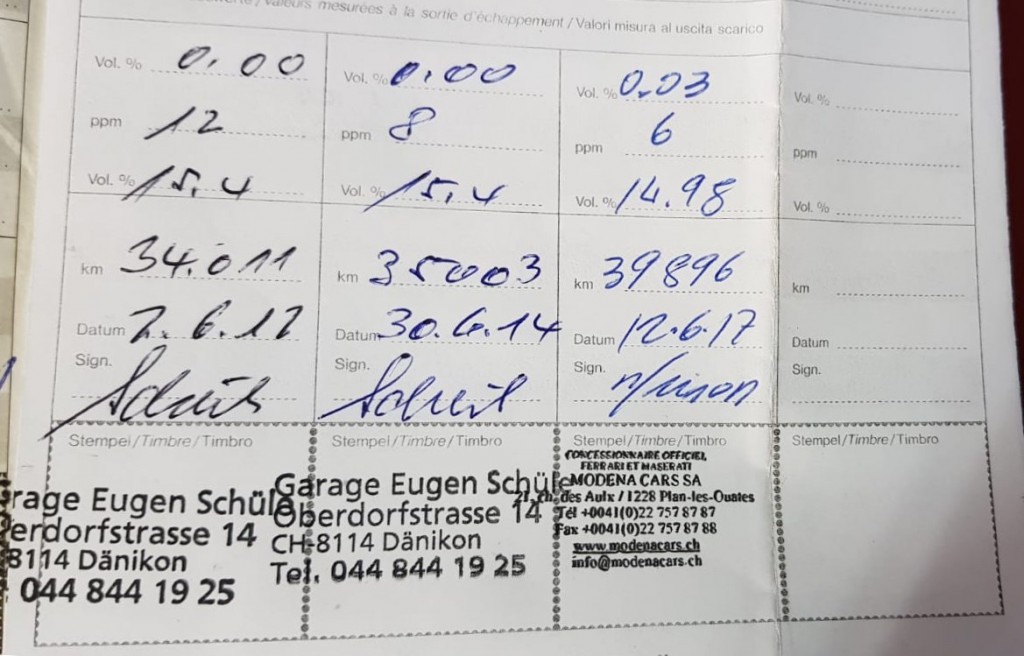 / Valeurs mesurées à la sortie d'échappement / Valori misura al uscita scarico
Vol. % 0.00
ppm 12
Vol. % 15.4
km 34.011
Datum 7.6.12
Sign.
Stempel/Timbre/Timbro
rage Eugen Schüle
erdorfstrasse 14
8114 Dänikon
044 844 19 25
Vol. % 0.00
ppm 8
Vol. % 15.4
km 35003
Datum 30.6.14
Sign.
Stempel/Timbre/Timbro
Garage Eugen Schüle
Oberdorfstrasse 14
CH-8114 Dänikon
Tel. 044 844 19 25
Vol. % 0.03
ppm 6
Vol. % 14.98
km 39896
Datum 12.6.17
Sign.
Stempel/Timbre/Timbro
CONCESSIONNAIRE OFFICIEL
FERRARI ET MASERATI
MODENA CARS SA
21, ch. des Aulx / 1228 Plan-les-Ouates
Tél +0041(0)22 757 87 87
Fax +0041(0)22 757 87 88
www.modenacars.ch
info@modenacars.ch
Vol. %
ppm
Vol. %
km
Datum
Sign.
Stempel/Timbre/Timbro